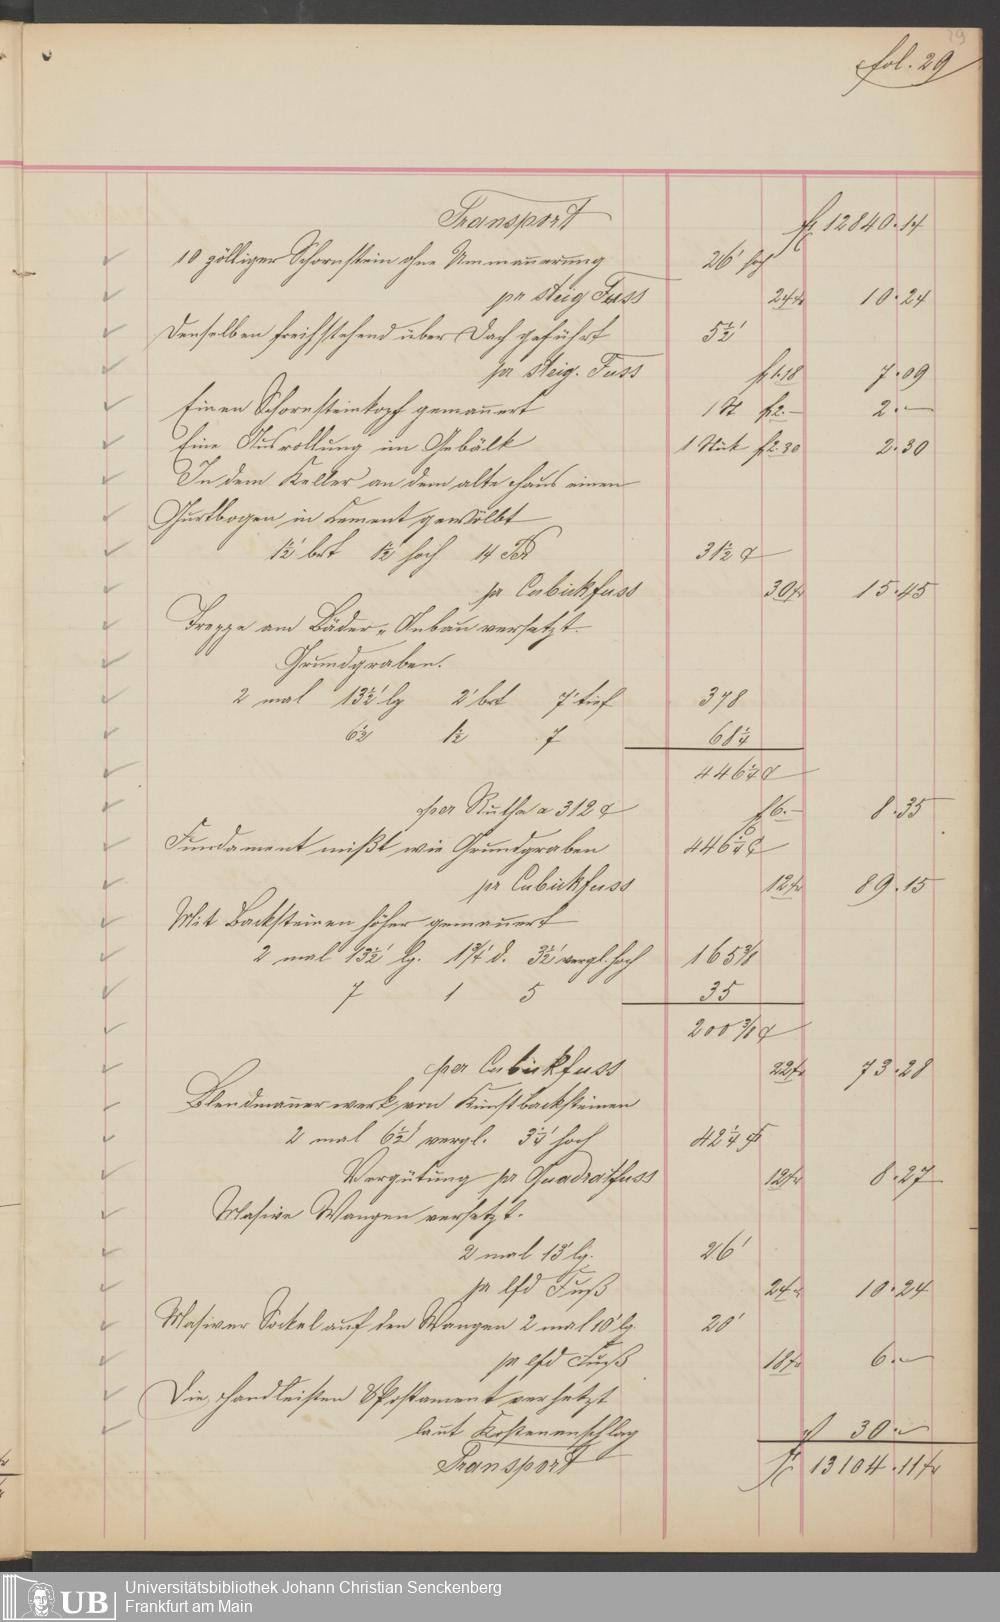 29
fol. 29
Transport fl 12840.14
10 zölliger Schornstein ohne Ummauerung 26' hoch
pr steig Fuss 24 kr 10.24
Denselben freihstehend über Dach geführt 5½'
pr steig. Fuss fl 1.18 7.09
Einen Schornsteinkopf gemauert 1 St fl 2.— 2.—
Eine Ausrollung im Gebälk 1 Stück fl 2.30 2.30
In dem Keller an dem alte Haus einen
Gurtbogen in Cement gewölbt
1½' brt 1½' hoch 14 31½ c
pr Cubickfuss 30 kr 15.45
Treppe am Bäder-Anbau versetzt.
Grundgraben.
2 mal 13½' lg 2' brt 7' tief 378
6½ 1½ 7 68¼
446¼ c
per Ruthe a 312 c fl 6.— 8.35
Fundament mißt wie Grundgraben 446¼ c
pr Cubickfuss 12 kr 89.15
Mit Backsteinen höher gemauert
2 mal 13½' lg. 1¾' d. 3½' vergl. hoch 165⅜
7 1 5 35
200⅜ c
per Cubickfuss 22 kr 73.28
Blendmauerwerk von Kunstbacksteinen
2 mal 6½' vergl. 3¼' hoch 42¼
Vergütung pr Quadratfuss 12 kr 8.27
Masive Wangen versetzt.
2 mal 13' lg. 26'
pr lfd Fuß 24 kr 10.24
Masiver Sockel auf den Wangen 2 mal 10' lg. 20'
pr lfd Fuß 18 kr 6.—
Die Handleisten & Postament versetzt
laut Kostenanschlag fl 30.—
Transport fl 13104.11 kr
Universitätsbibliothek Johann Christian Senckenberg
Frankfurt am Main
UB